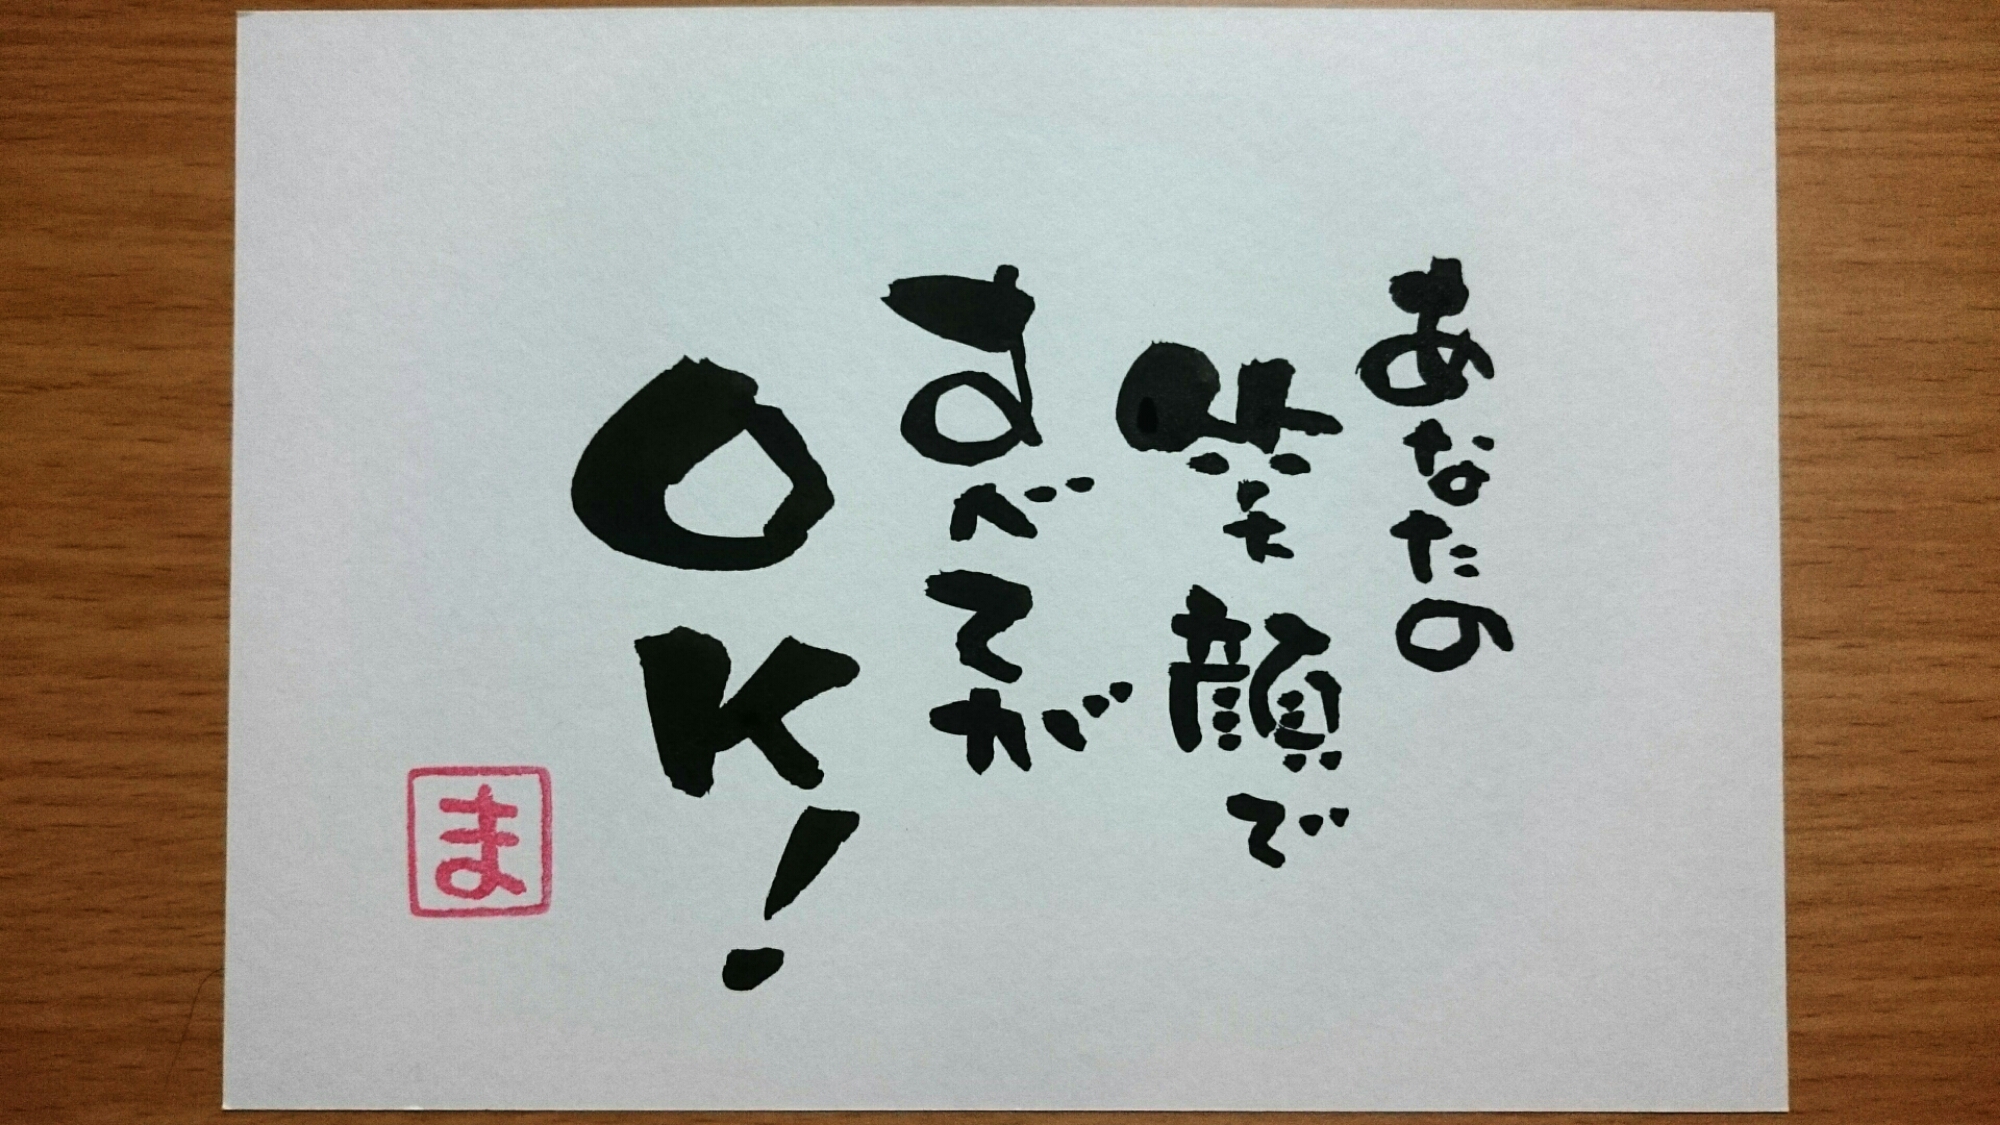 あなたの
笑顔で
すべてが
OK!
ま